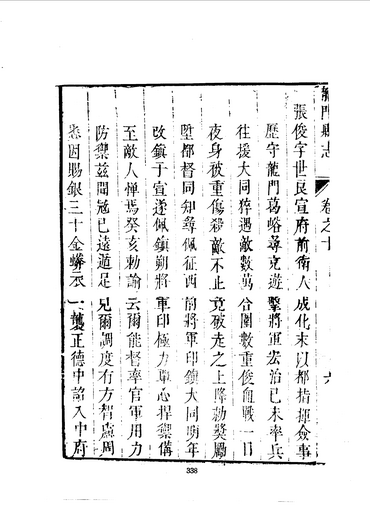 龍門縣志 卷之十 六
張俊字世良宣府前衛人成化末以都指揮僉事
歷守龍門葛峪尋充遊擊將軍宏治己未率兵
往援大同猝遇敵數萬合圍數重俊血戰一日
夜身被重傷殺敵不止竟破走之上降勅獎勵
陞都督同知尋佩征西前將軍印鎮大同明年
改鎮于宣遂佩鎮朔將軍印極力單心捍禦備
至敵人憚焉癸亥勅諭云爾能督率官軍用力
防禦茲聞寇已遠遁足見爾調度有方智慮周
悉因賜銀三十金蟒衣一襲正德中詔入中府
338